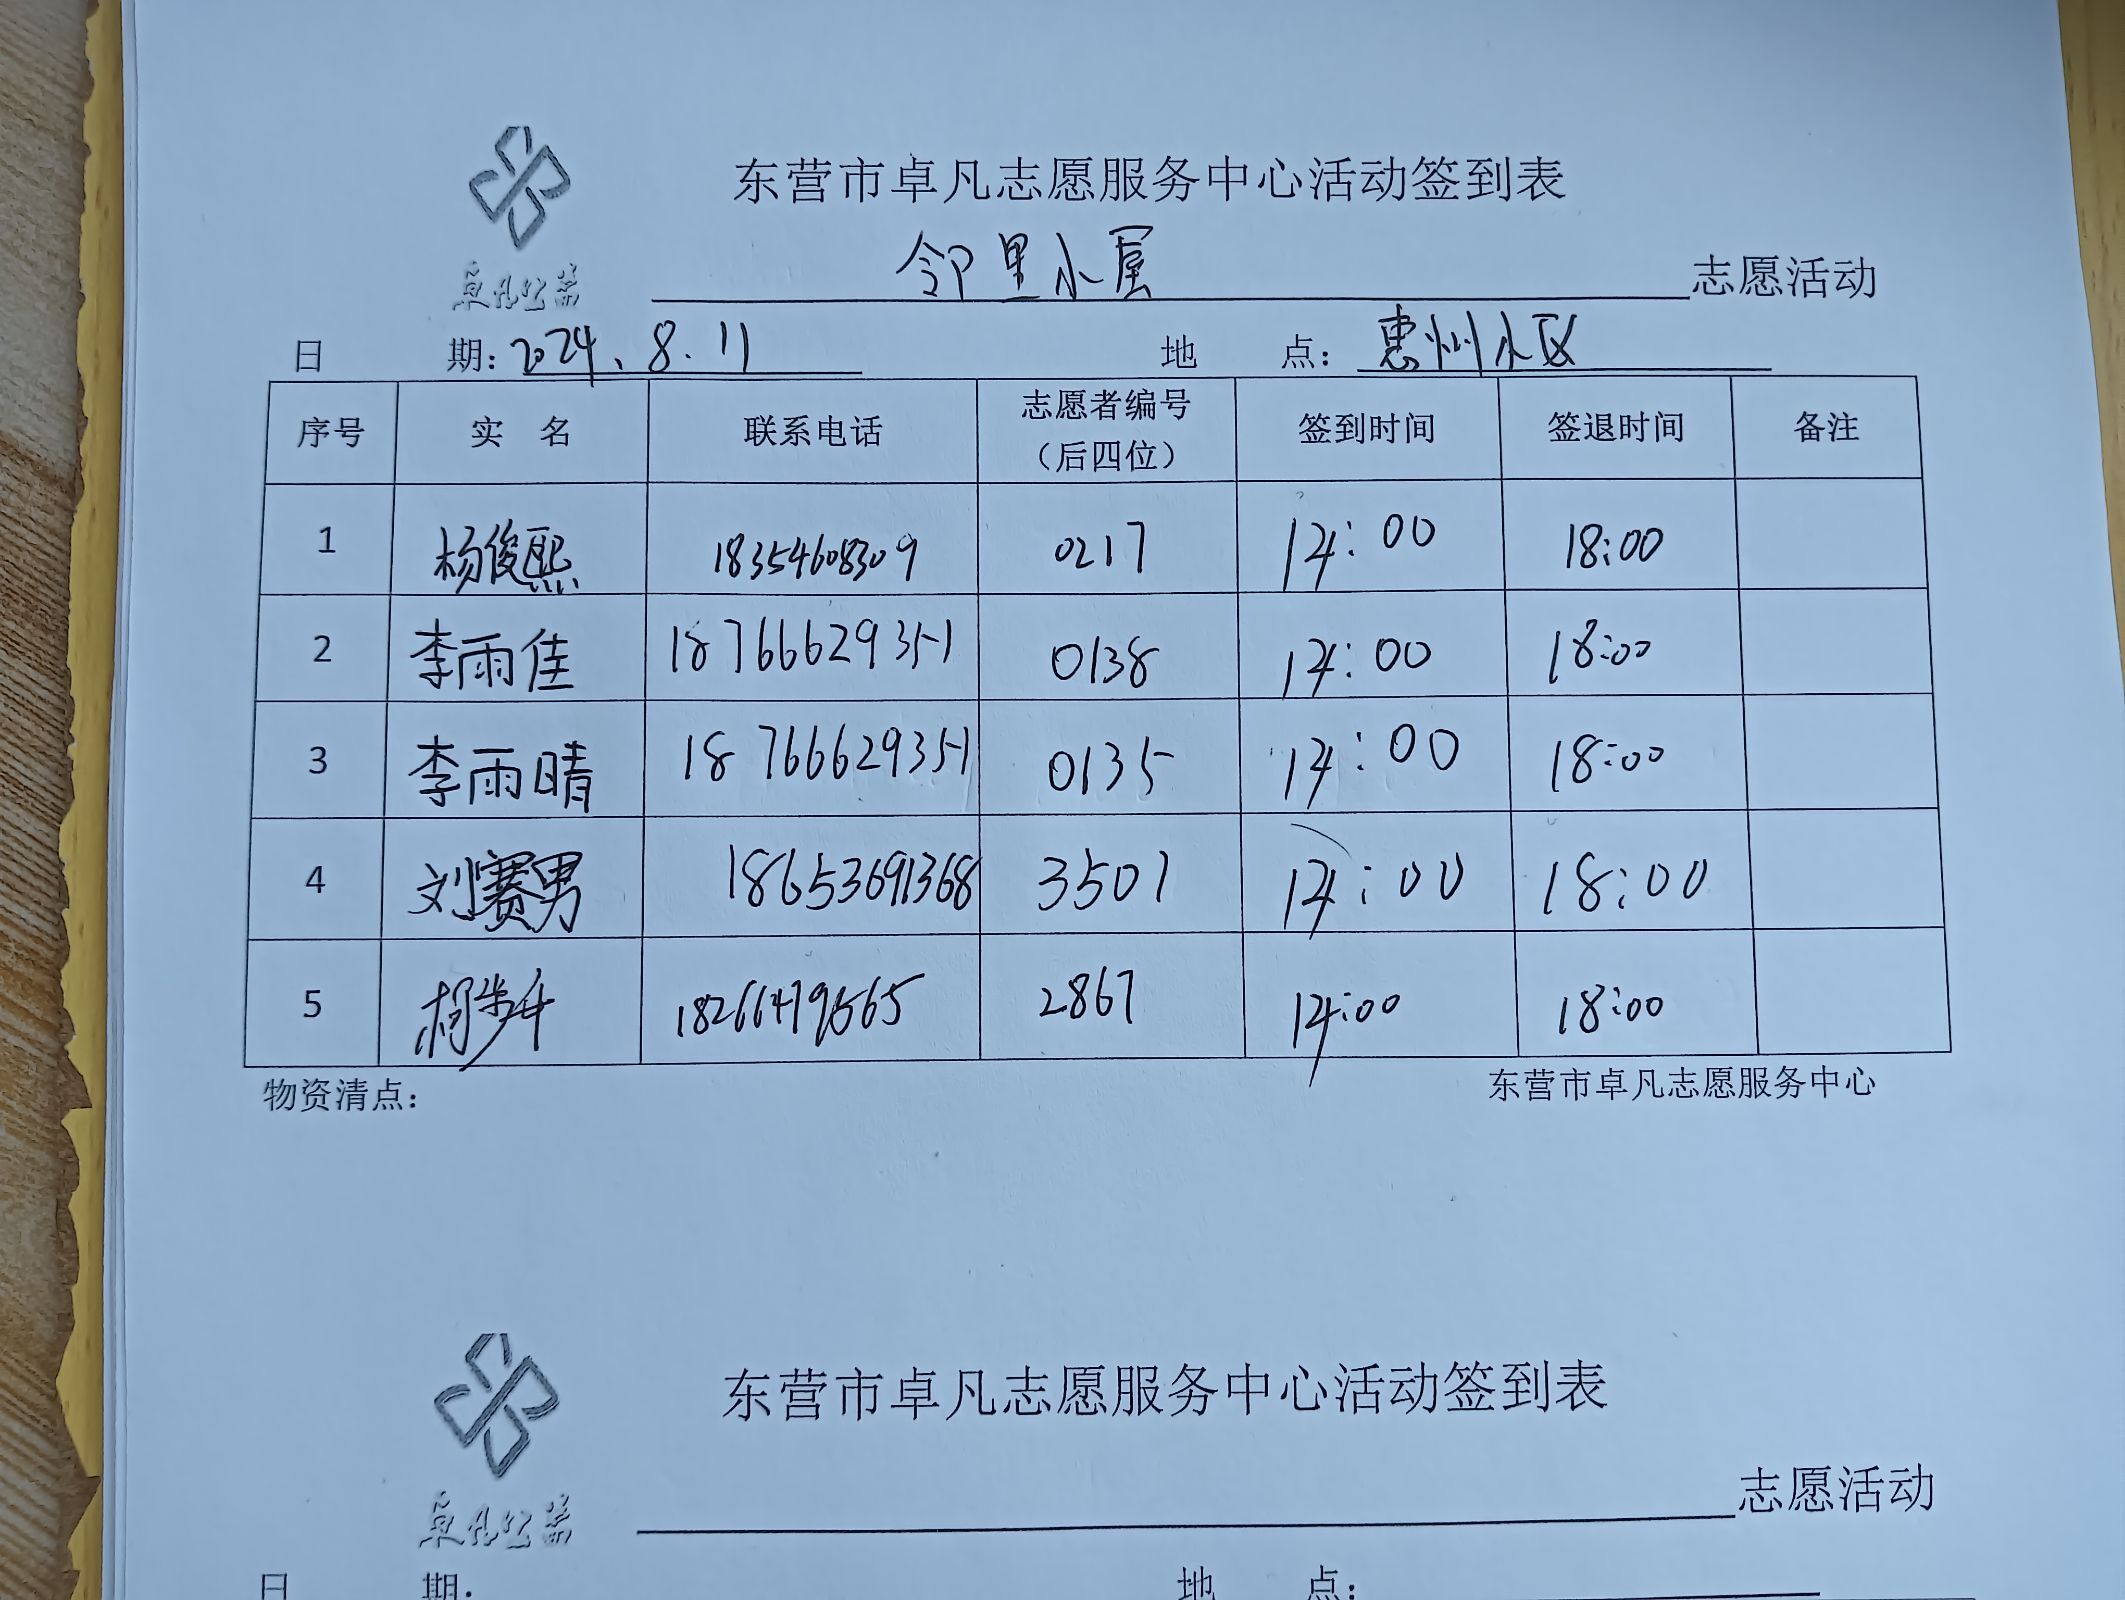 东营市卓凡志愿服务中心活动签到表
卓凡公益
邻里小屋 志愿活动
日 期：2024.8.11 地 点：惠州小区
序号 实 名 联系电话 志愿者编号（后四位） 签到时间 签退时间 备注
1 杨俊熙 18354608309 0217 14:00 18:00
2 李雨佳 18766629351 0138 14:00 18:00
3 李雨晴 18766629351 0135 14:00 18:00
4 刘赛男 18653691368 3501 14:00 18:00
5 2867 14:00 18:00
物资清点： 东营市卓凡志愿服务中心
东营市卓凡志愿服务中心活动签到表
卓凡公益
志愿活动
日 期： 地 点：